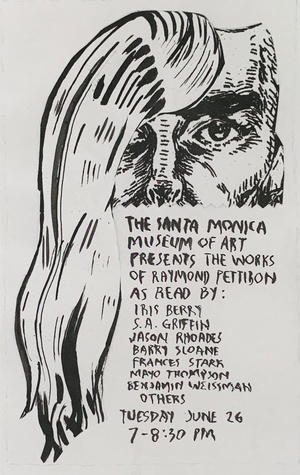 THE SANTA MONICA
MUSEUM OF ART
PRESENTS THE WORKS
OF RAYMOND PETTIBON
AS READ BY:
IRIS BERRY
S.A. GRIFFIN
JASON RHOADES
BARRY SLOANE
FRANCES STARK
MAYO THOMPSON
BENJAMIN WEISSMAN
OTHERS
TUESDAY JUNE 26
7-8:30 PM